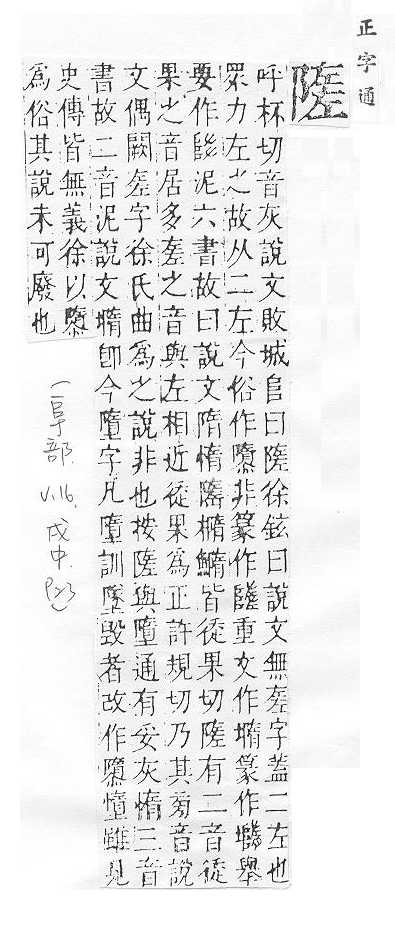 正字通
隓
呼杯切音灰說文敗城𨸏曰隓徐鉉曰說文無字蓋二左也
眾力左之故从二左今俗作隳非篆作重文作篆作舉
要作泥六書故曰說文隋惰橢鰖皆從果切隓有二音從
果之音居多之音與左相近從果為正許規切乃其旁音說
文偶闕字徐氏曲為之說非也按隓與墮通有妥灰惰三音
書故二音泥說文即今墮字凡墮訓墜毀者故作隳雖見
史傳皆無義徐以隳
為俗其說未可廢也
(阜部. V.16. 戌中. P23)